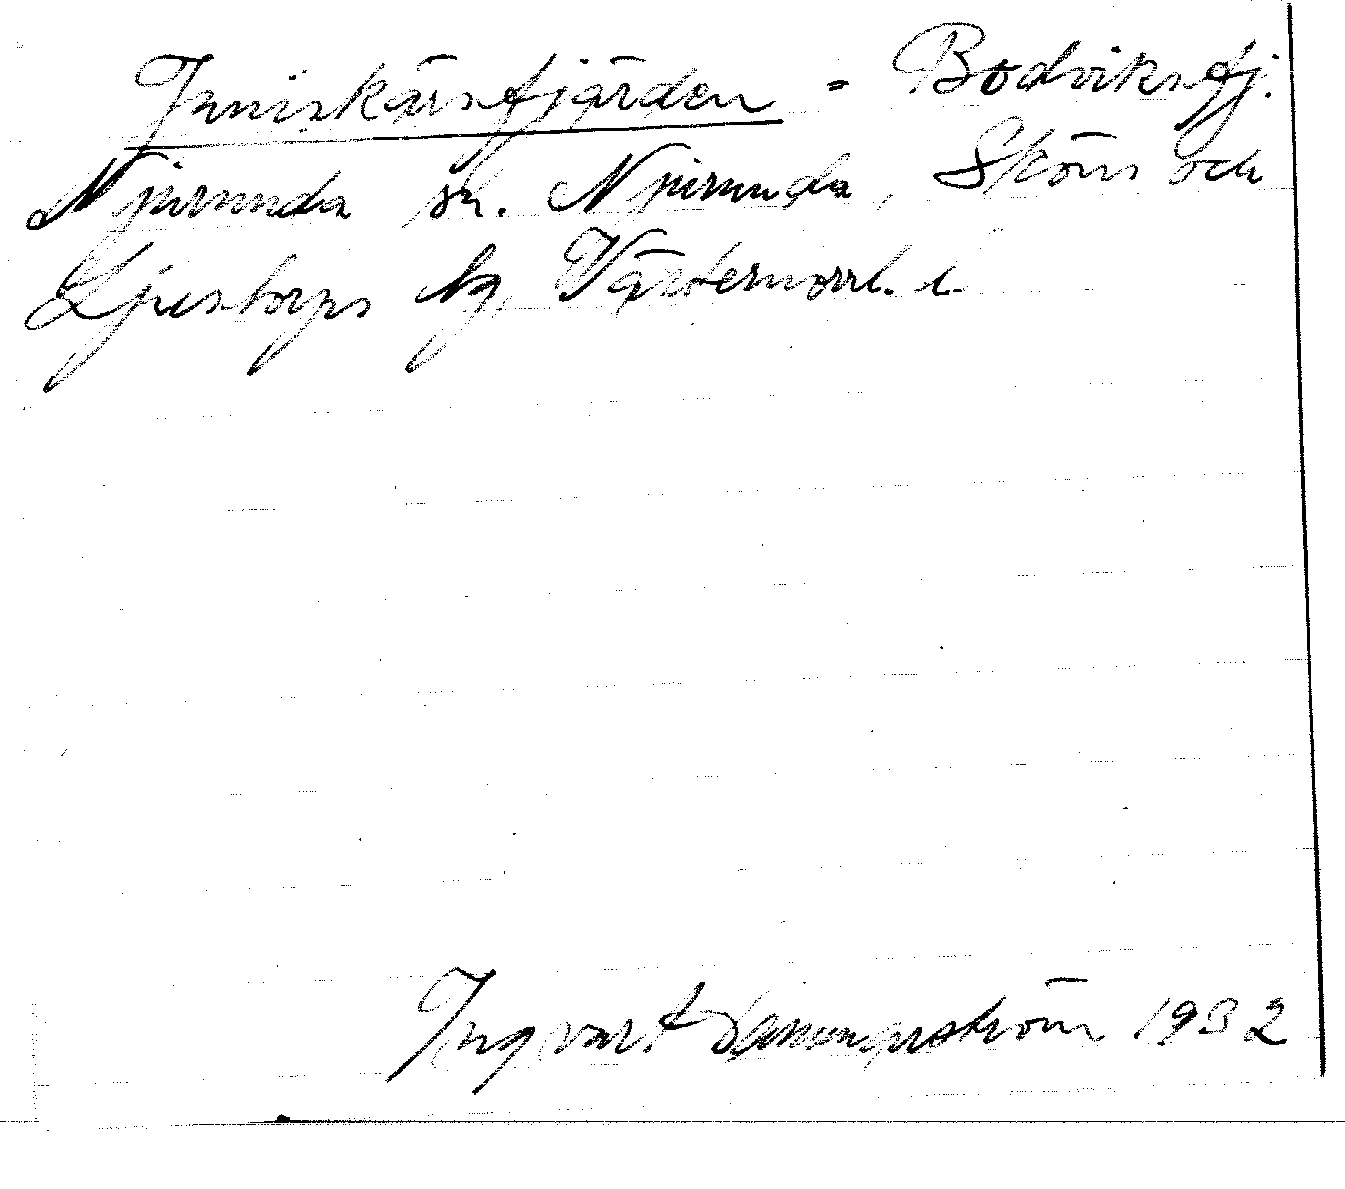 Juniskärsfjärden = Bodviksfj.
Njurunda sn. Njurunda, Sköns och
Ljustorps tg, Västernorrl. l.
Ingvar 1932